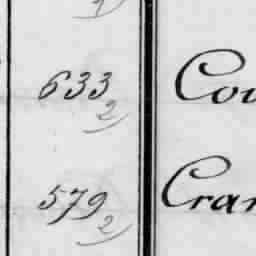 633 2 Cou
579 2 Cran